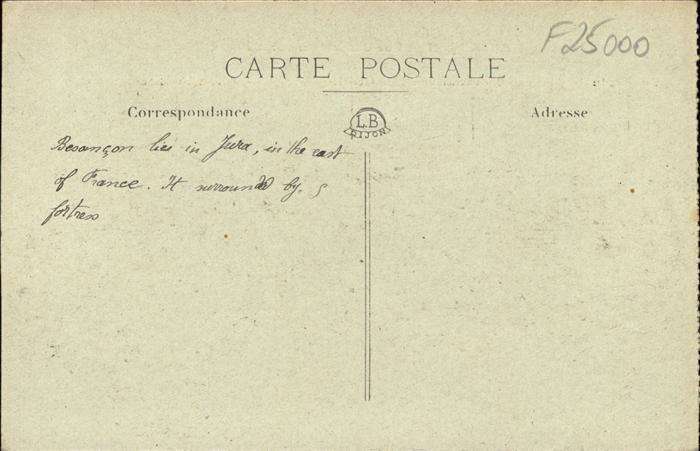 F25000
CARTE POSTALE
Correspondance
L.B
DIJON
Adresse
Besançon lies in Jura, in the east
of France. It surrounded by 5
fortress